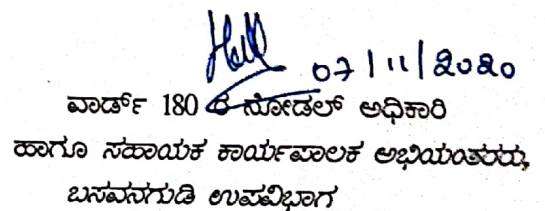 07/11/2020
ವಾರ್ಡ್ 180 ರ ನೋಡಲ್ ಅಧಿಕಾರಿ
ಹಾಗೂ ಸಹಾಯಕ ಕಾರ್ಯಪಾಲಕ ಅಭಿಯಂತರರು,
ಬಸವನಗುಡಿ ಉಪವಿಭಾಗ